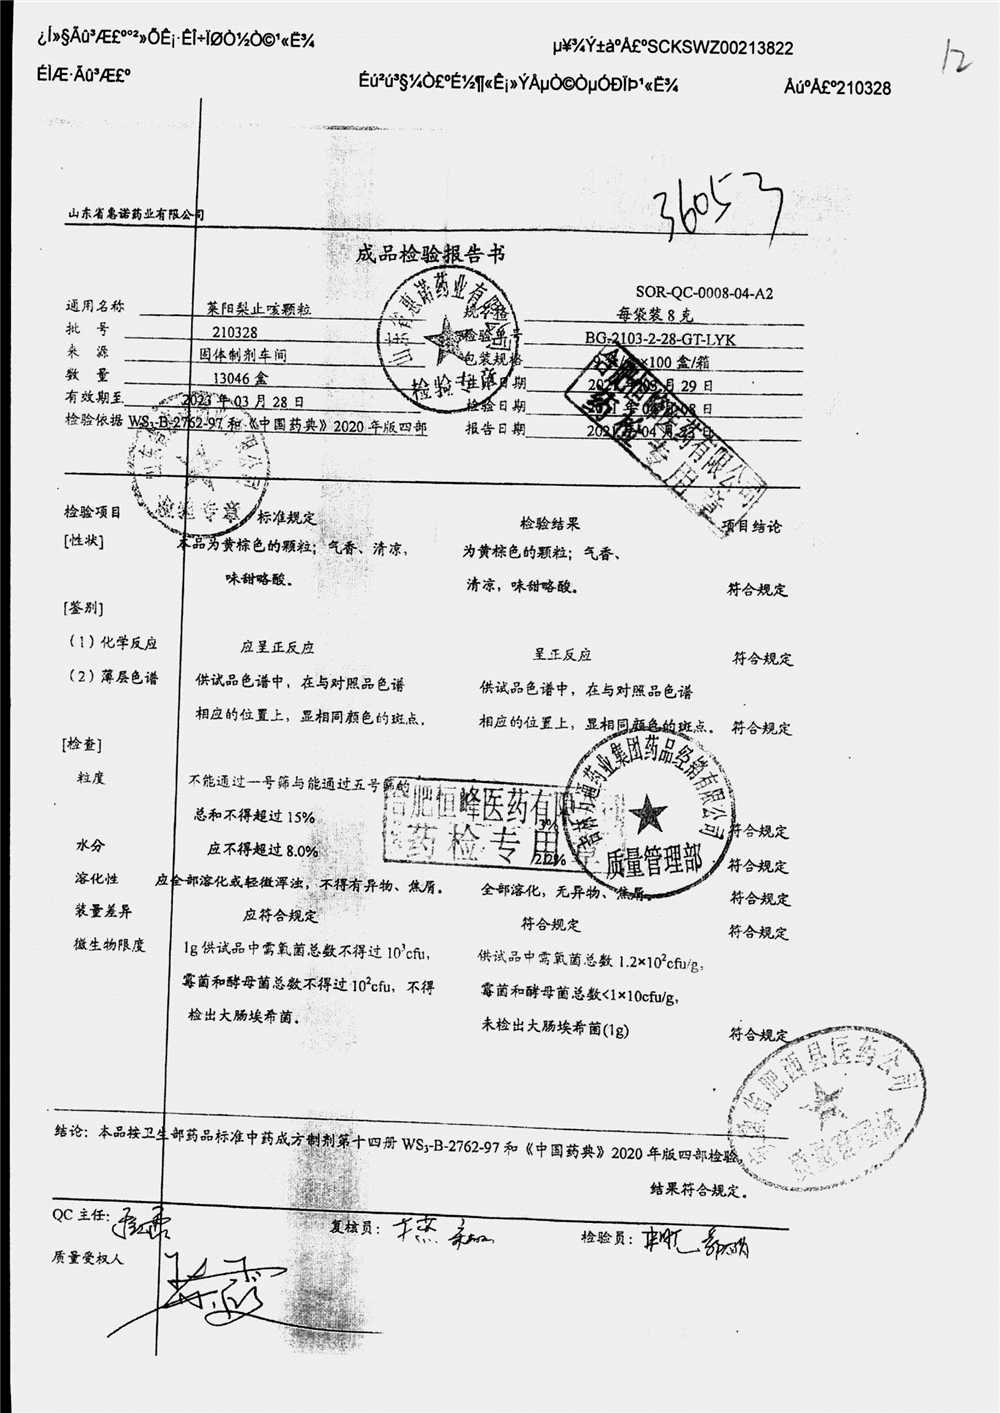 ¿Í»§Ãû³Æ£º°²»ÕÊ¡·ÊÎ÷ÏØÒ½Ò©¹«Ë¾
µ¥¾Ý±àºÅ£ºSCKSWZ00213822
12
ÉÌÆ·Ãû³Æ£º
Éú²ú³§¼Ò£ºÉ½¶«Ê¡»ÝÅµÒ©ÒµÓÐÏÞ¹«Ë¾
ÅúºÅ£º210328
36053
山东省惠诺药业有限公司
成品检验报告书
SOR-QC-0008-04-A2
通用名称 莱阳梨止咳颗粒 规格 每袋装 8 克
批 号 210328 检验单号 BG-2103-2-28-GT-LYK
来 源 固体制剂车间 包装规格 ×100 盒/箱
数 量 13046 盒 生产日期 2021 年 03 月 29 日
有效期至 2023 年 03 月 28 日 检验日期 月 08 日
检验依据 WS₃-B-2762-97 和《中国药典》2020 年版四部 报告日期 2021 年 04 月 日
山东省惠诺药业有限公司
检验专用章
合肥恒峰医药有限公司
药检专用章
检验专用章
检验项目 标准规定 检验结果 项目结论
[性状] 本品为黄棕色的颗粒；气香、清凉， 为黄棕色的颗粒；气香、
味甜略酸。 清凉，味甜略酸。 符合规定
[鉴别]
（1）化学反应 应呈正反应 呈正反应 符合规定
（2）薄层色谱 供试品色谱中，在与对照品色谱 供试品色谱中，在与对照品色谱
相应的位置上，显相同颜色的斑点。 相应的位置上，显相同颜色的斑点。 符合规定
[检查]
粒度 不能通过一号筛与能通过五号筛的
总和不得超过 15% 3% 符合规定
水分 应不得超过 8.0% 2.2% 符合规定
合肥恒峰医药有限
药检专用
吉林万通药业集团药品经销有限公司
质量管理部
溶化性 应全部溶化或轻微浑浊，不得有异物、焦屑。 全部溶化，无异物、焦屑。 符合规定
装量差异 应符合规定 符合规定 符合规定
微生物限度 1g 供试品中需氧菌总数不得过 10³cfu， 供试品中需氧菌总数 1.2×10²cfu/g，
霉菌和酵母菌总数不得过 10²cfu，不得 霉菌和酵母菌总数<1×10cfu/g，
检出大肠埃希菌。 未检出大肠埃希菌(1g) 符合规定
安徽省肥西县医药公司
结论：本品按卫生部药品标准中药成方制剂第十四册 WS₃-B-2762-97 和《中国药典》2020 年版四部检验，
结果符合规定。
QC 主任： 复核员： 检验员：
质量受权人